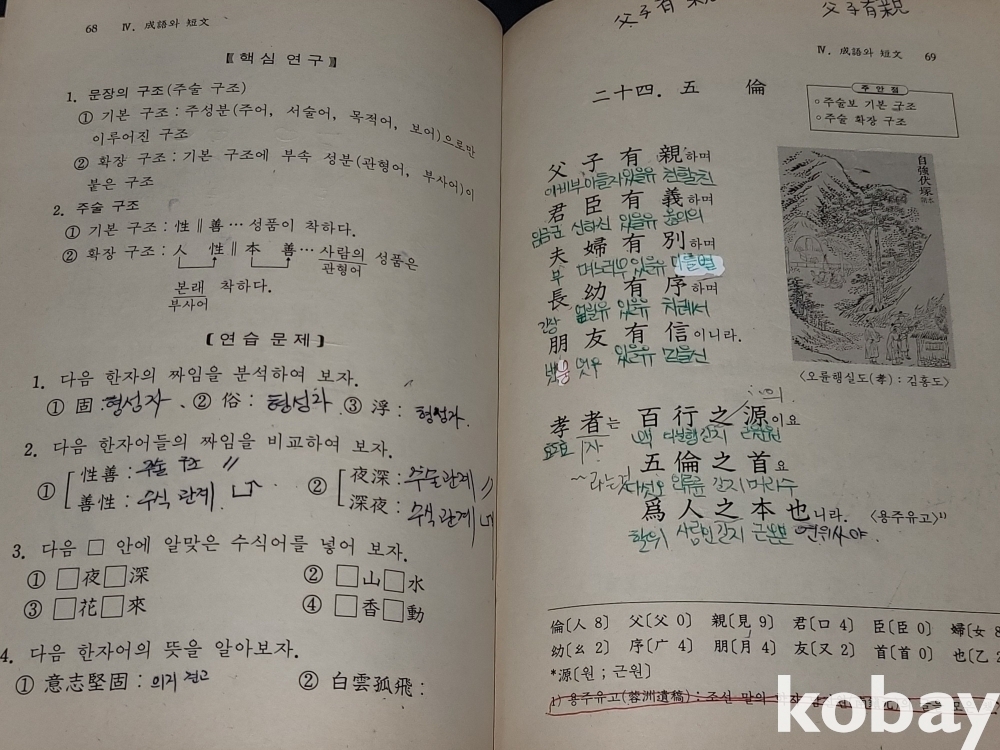 68 Ⅳ. 成語와 短文
【핵심 연구】
1. 문장의 구조(주술 구조)
① 기본 구조 : 주성분(주어, 서술어, 목적어, 보어)으로만
이루어진 구조
② 확장 구조 : 기본 구조에 부속 성분(관형어, 부사어)이
붙은 구조
2. 주술 구조
① 기본 구조 : 性∥善… 성품이 착하다.
② 확장 구조 : 人 性∥本 善… 사람의 성품은
관형어
본래 착하다.
부사어
〔연습 문제〕
1. 다음 한자의 짜임을 분석하여 보자.
① 固 : 형성자. ② 俗 : 형성자 ③ 浮 : 형성자.
2. 다음 한자어들의 짜임을 비교하여 보자.
① 性善 : 주술 구조 〃 ② 夜深 : 주술관계 〃
善性 : 수식 관계 深夜 : 수식관계
3. 다음 □ 안에 알맞은 수식어를 넣어 보자.
① □夜□深 ② □山□水
③ □花□來 ④ □香□動
4. 다음 한자어의 뜻을 알아보자.
① 意志堅固 : 의지 견고 ② 白雲孤飛 :
父子有親 父子有親
Ⅳ. 成語와 短文 69
二十四. 五 倫
주안점
○주술보 기본 구조
○주술 확장 구조
父子有親하며
아비부아들자있을유 친할친
君臣有義하며
임금군 신하신 있을유 옳을의
夫婦有別하며
부 며느리부있을유 다를별
長幼有序하며
긴장 어릴유 있을유 차례서
朋友有信이니라.
벗붕 벗우 있을유 믿을신
自强伏塚
〈오륜행실도(孝) : 김홍도〉
孝者는 百行之源이요
효도효 자 근원원
五倫之首요
다섯오 인륜륜 갈지 머리수
爲人之本也니라. 〈용주유고〉¹⁾
할위 사람인갈지 근본본
倫〔人 8〕 父〔父 0〕 親〔見 9〕 君〔口 4〕 臣〔臣 0〕 婦〔女 8
幼〔幺 2〕 序〔广 4〕 朋〔月 4〕 友〔又 2〕 首〔首 0〕 也〔乙 2
*源〔원 ; 근원〕
1) 용주유고(蓉洲遺稿) : 조선 말의
kobay